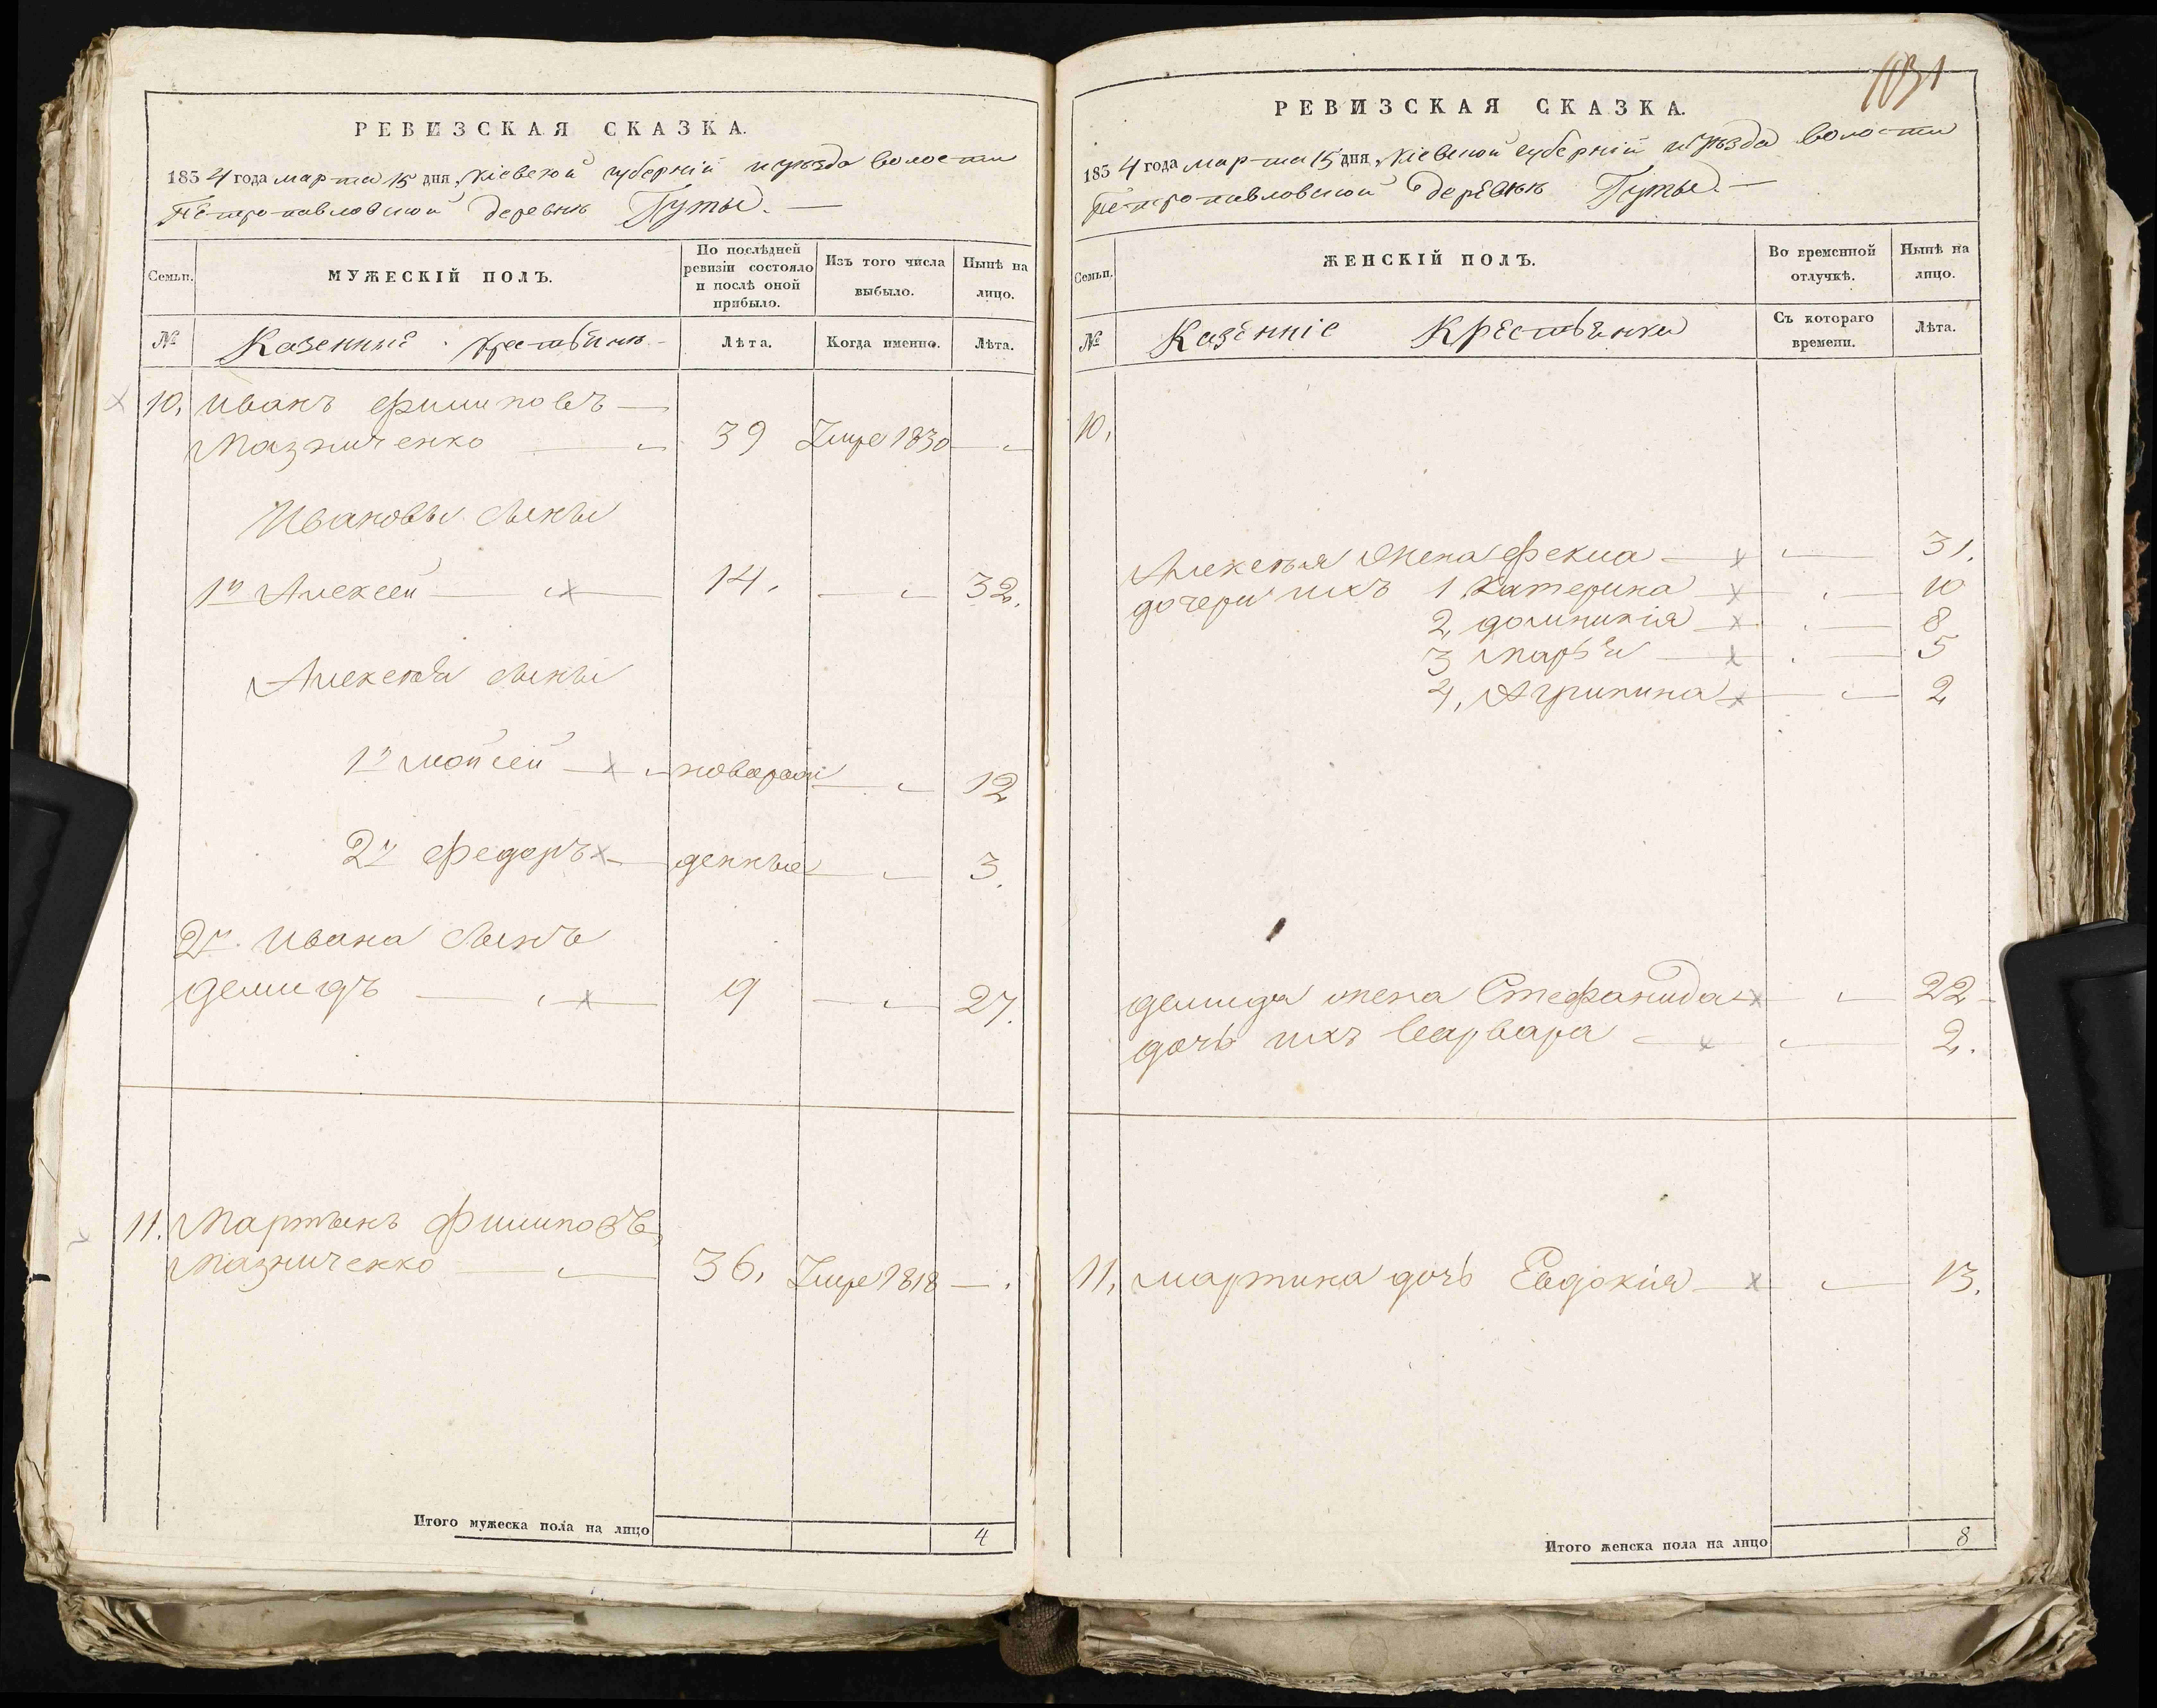 РЕВИЗСКАЯ СКАЗКА.
1854 года марта 15 дня, Кіевской губерніи и уѣзда волости
Петропавловской деревнѣ Гуты.
Семьи.
МУЖЕСКІЙ ПОЛЪ.
По послѣдней ревизіи состояло и послѣ оной прибыло.
Изъ того числа выбыло.
Нынѣ на лицо.
№
Казенные крестьяне
Лѣта.
Когда именно.
Лѣта.
10. Иванъ Филиповъ
Мазниченко 39 Умре 1830
Ивановы сыны
1й Алексей 14. 32.
Алексея сыны
1й Мойсей новорож 12
2й Федоръ денные 3.
2й Ивана сынъ
Демидъ 9 27.
11. Мартынъ Филиповъ
Мазниченко 36. Умре 1818
Итого мужеска пола на лицо 4
1031
РЕВИЗСКАЯ СКАЗКА.
1854 года марта 15 дня, Кіевской губерніи и уѣзда волости
Петропавловской деревнѣ Гуты.
Семьи.
ЖЕНСКІЙ ПОЛЪ.
Во временной отлучкѣ.
Нынѣ на лицо.
№
Казенніе Крестьянки
Съ котораго времени.
Лѣта.
10.
Алексея жена Фекла 31.
дочери ихъ 1 Катерина 10
2, Доминикія 8
3 Марья 5
4, Агрипина 2
Демида жена Стефанида 22
дочь ихъ Варвара 2.
11. Мартина дочь Евдокія 13.
Итого женска пола на лицо 8